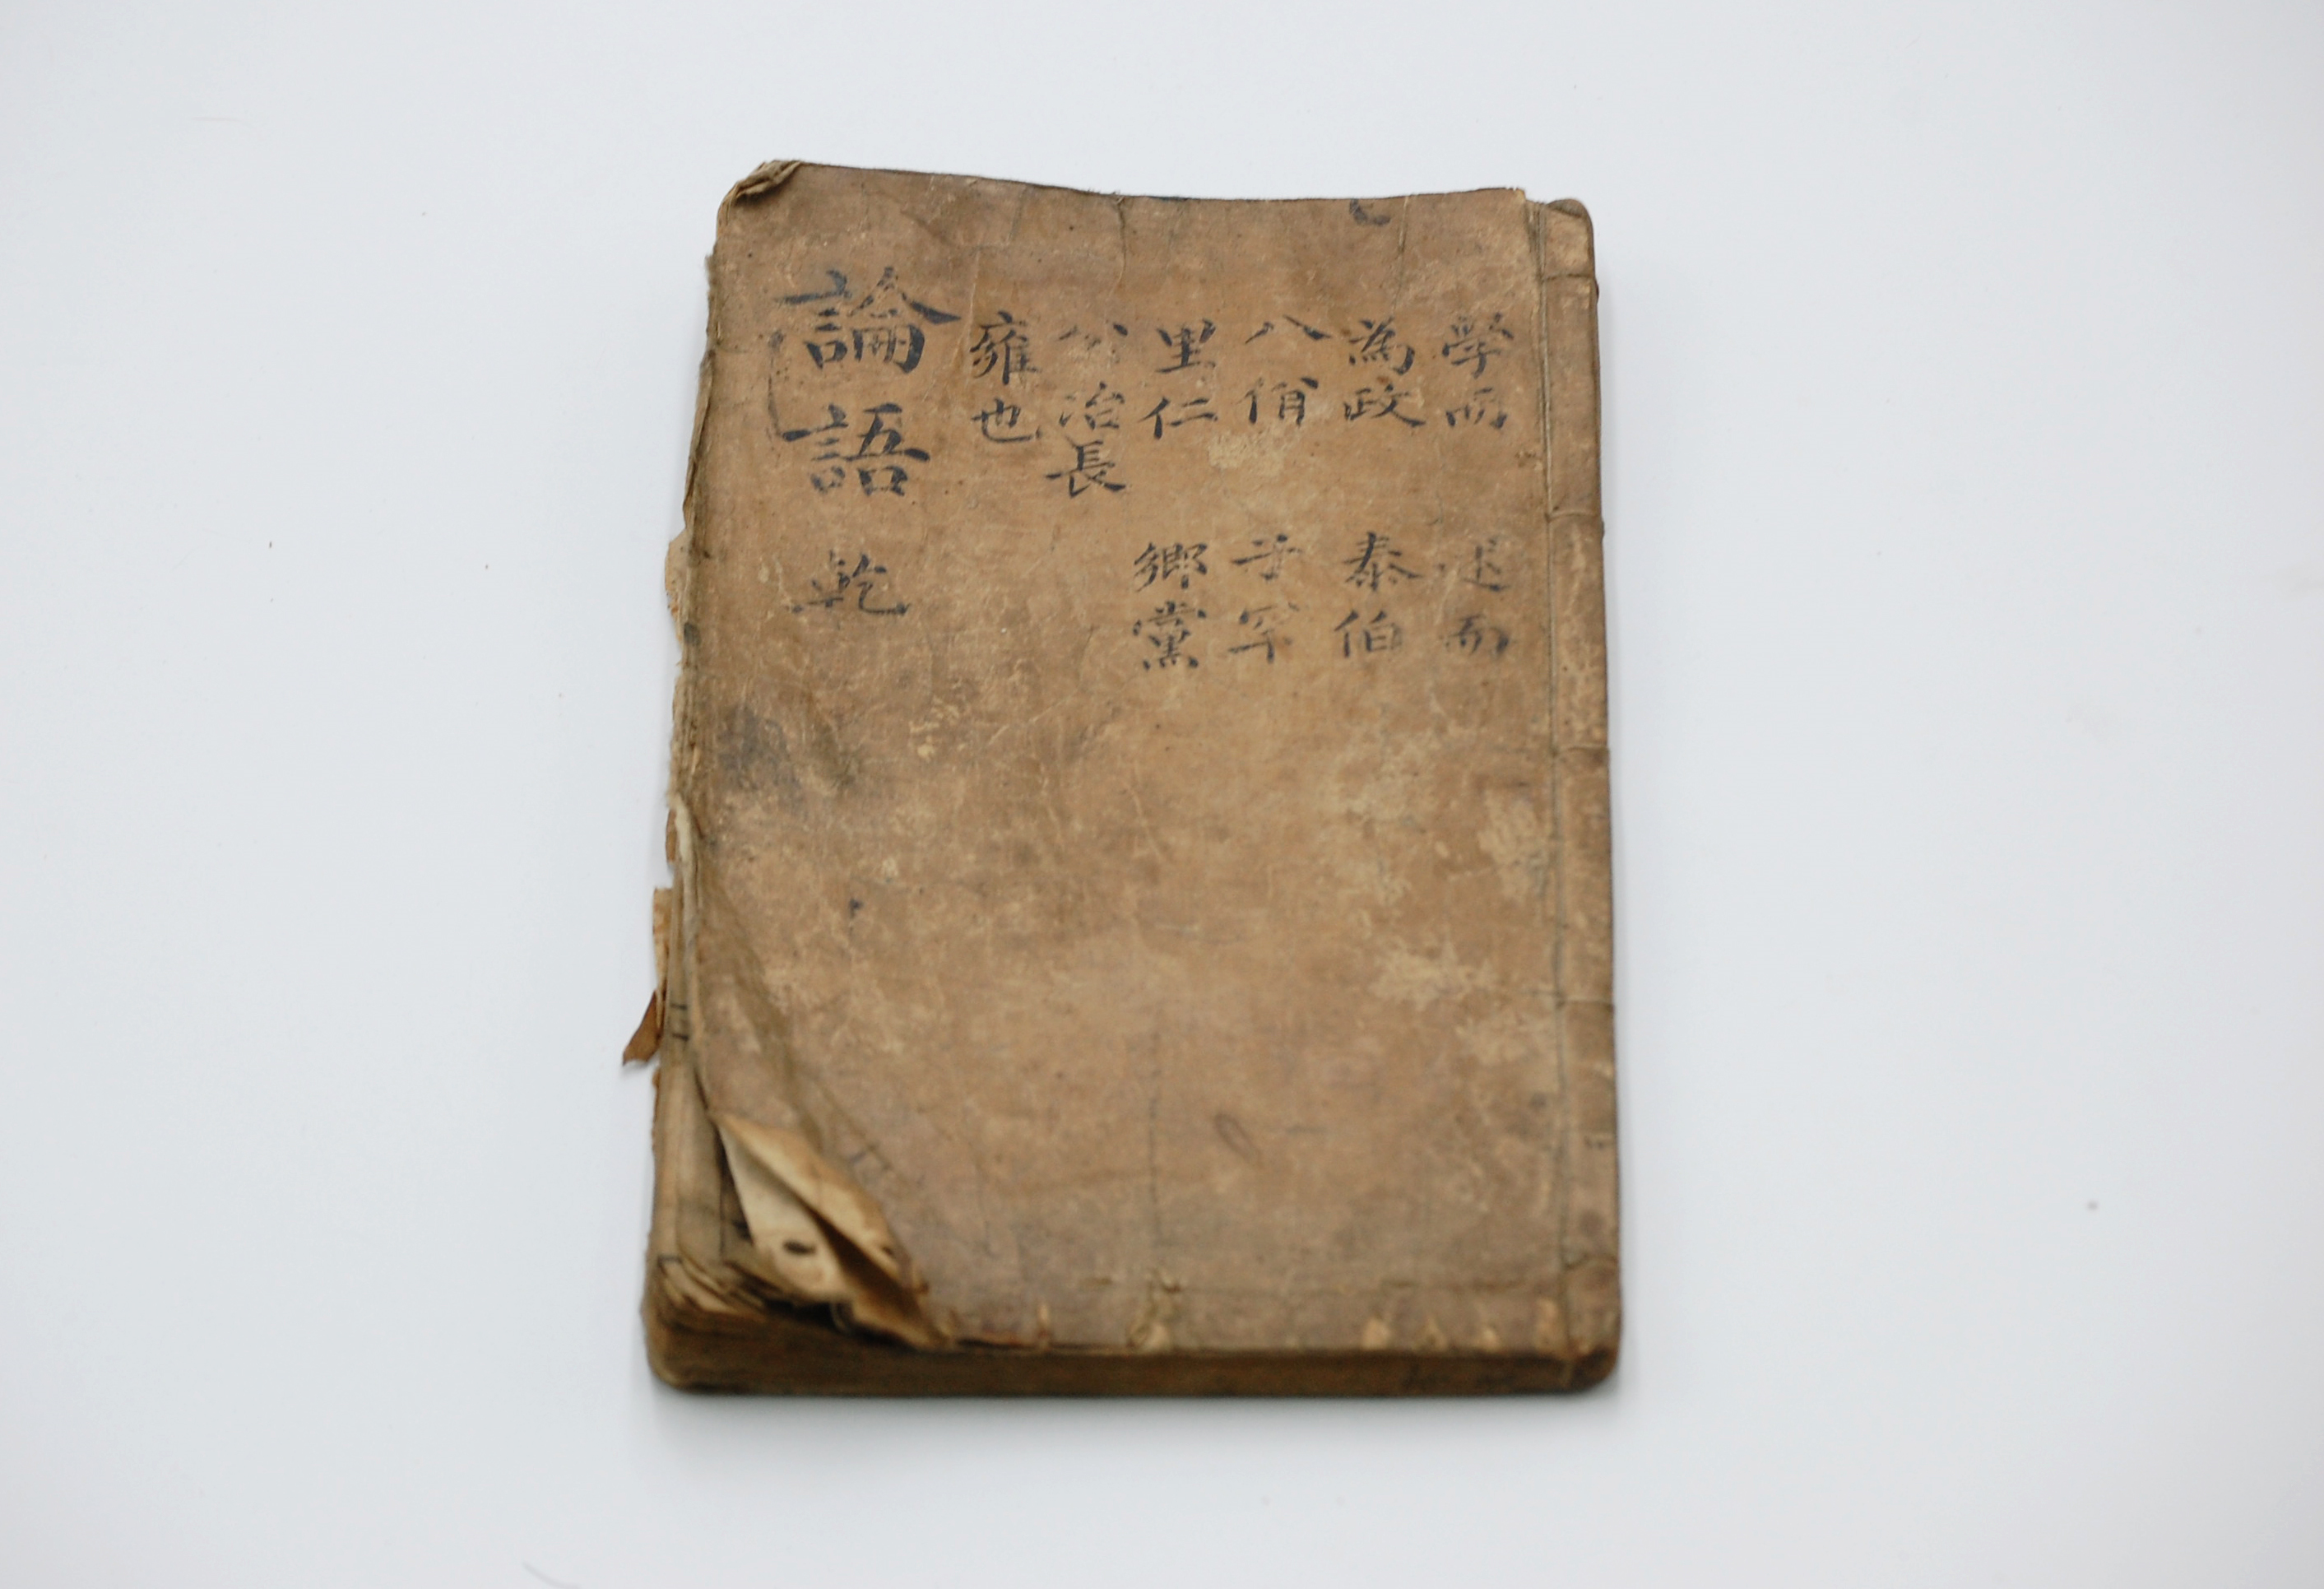 學而
為政
八佾
里仁
公冶長
雍也
述而
泰伯
子罕
鄉黨
論語 乾